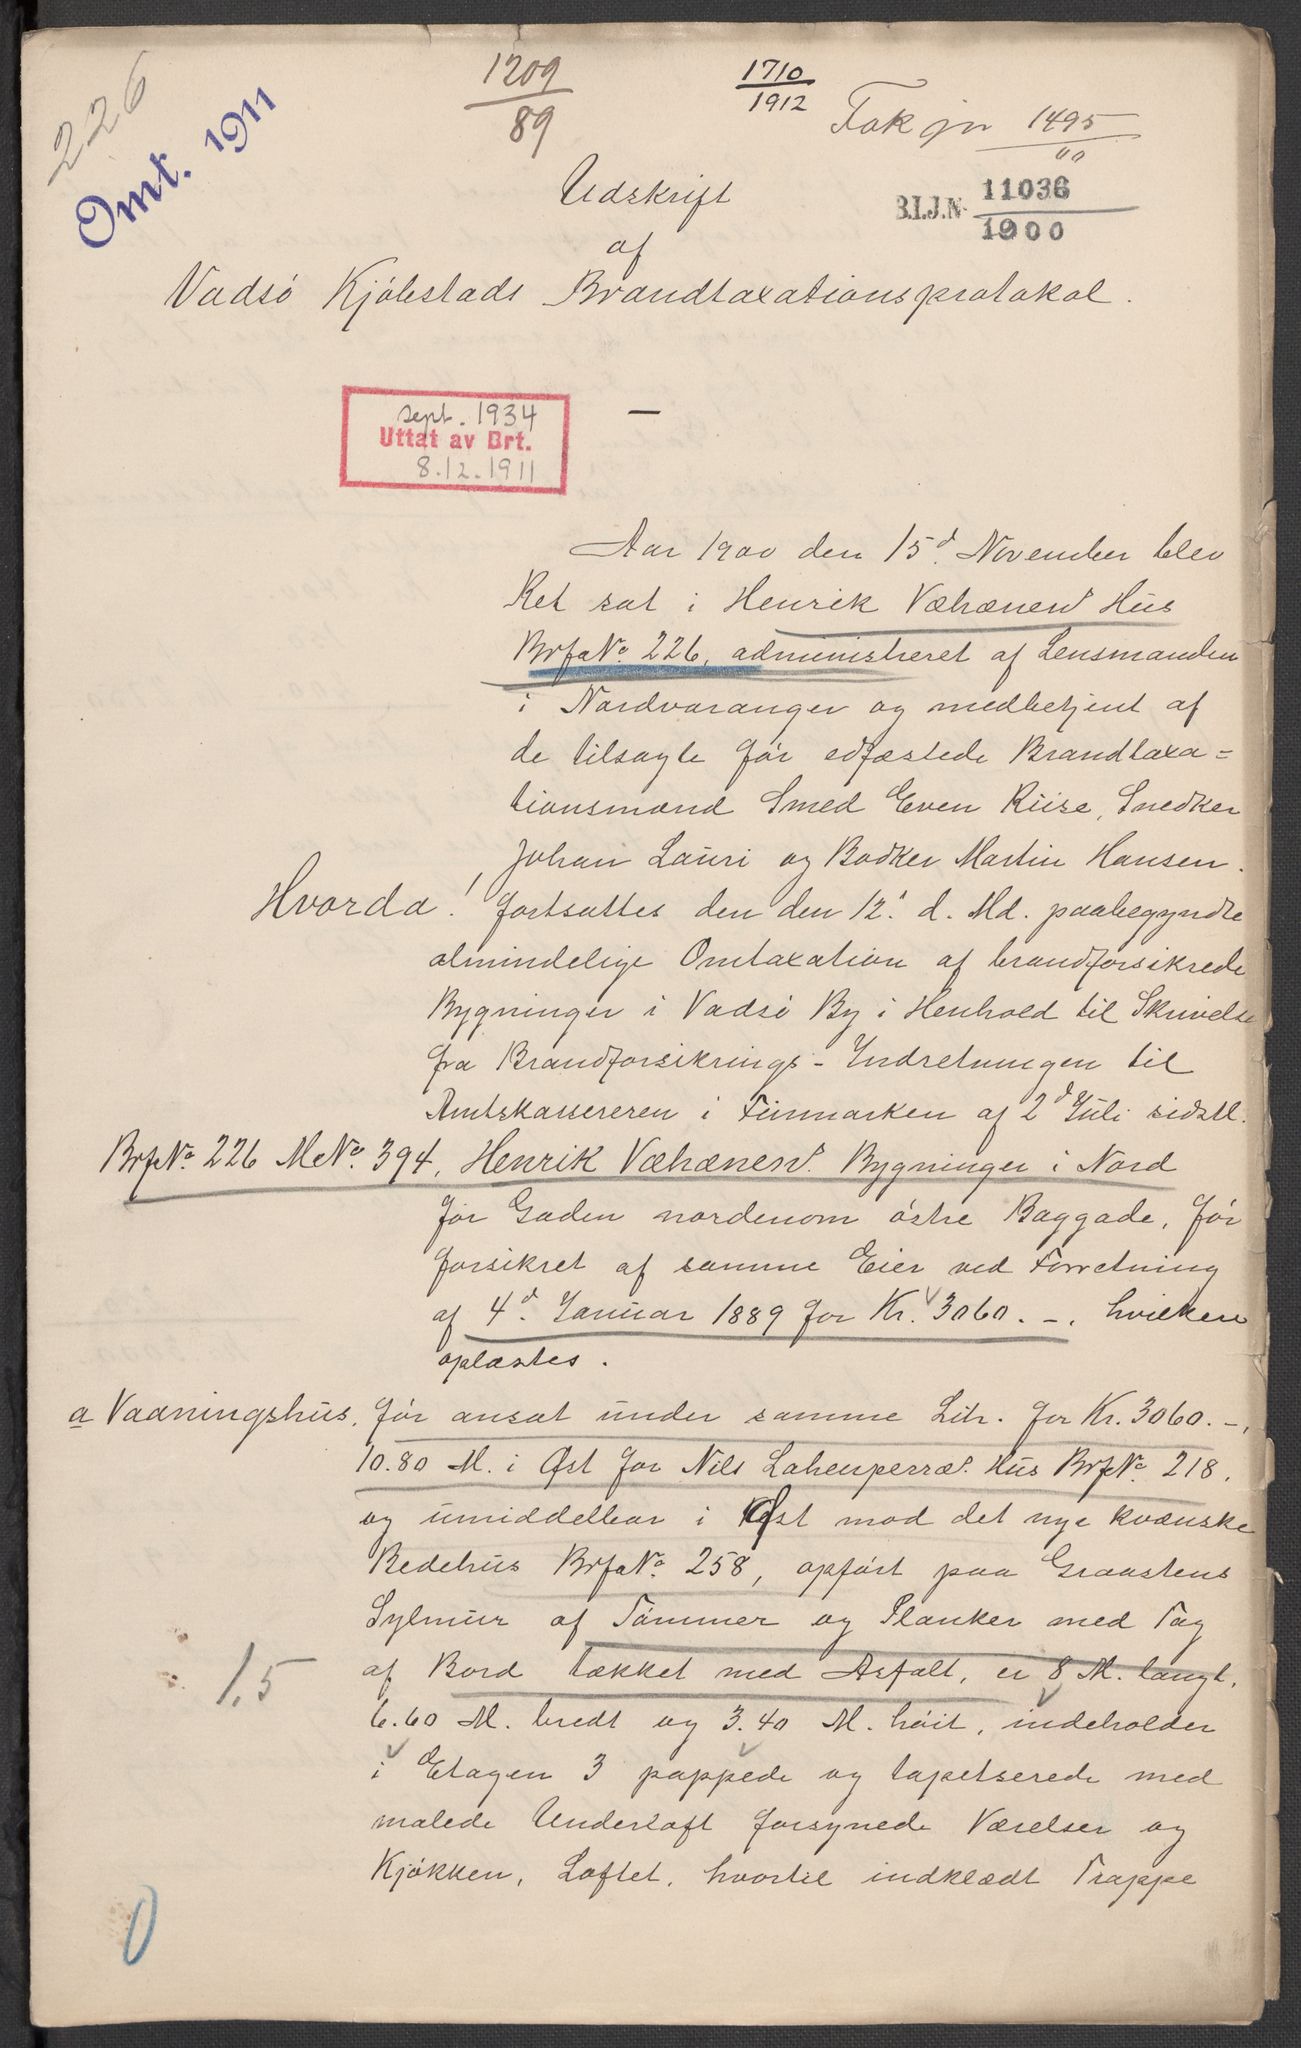 226
Omt. 1911
1209
89
1710
1912
Tak jn 1495
00
B.I.J.N. 11036
1900
Udskrift
af
Vadsö Kjöbstads Brandtaxationsprotokol.
sept. 1934
Uttat av Brt.
8.12.1911
Aar 1900 den 15d November blev
Ret sat i Henrik Væhænens Hus
BrfaNo. 226, administreret af Lensmanden
i Nordvaranger og medbetjent af
de tilsagte för edfæstede Brandtaxa=
tionsmænd Smed Even Riise, Snedker
Johan Lauri og Bødker Martin Hansen.
Hvorda! fortsattes den den 12. d. Md. paabegyndte
almindelige Omtaxation af brandforsikrede
Bygninger i Vadsö By i Henhold til Skrivelse
fra Brandforsikrings-Indretningen til
Amtskassereren i Finmarken af 2d Juli sidstl.
BrfNo. 226 MNo. 394, Henrik Væhænens Bygninger i Nord
for Gaden nordenom östre Baggade, för
forsikret af samme Eier ved Forretning
af 4d. Januar 1889 for Kr. 3060.-. hvilken
oplæstes.
a Vaaningshus, för ansat under samme Litr. for Kr. 3060.-,
10.80 M. i Øst for Nils Lahenperræs Hus BrfNo. 218,
og umiddelbar i Øst mod det nye kvænske
Bedehus BrfaNo. 258, opfört paa Graastens
Sylmur af Tömmer og Planker med Tag
af Bord tækket med Asfalt, er 8 M. langt,
1.5
6.60 M. bredt og 3.40 M. höit, indeholder
i Etagen 3 pappede og tapetserede med
malede Underloft forsynede Værelser og
Kjökken, Loftet, hvortil indklædt Trappe
0